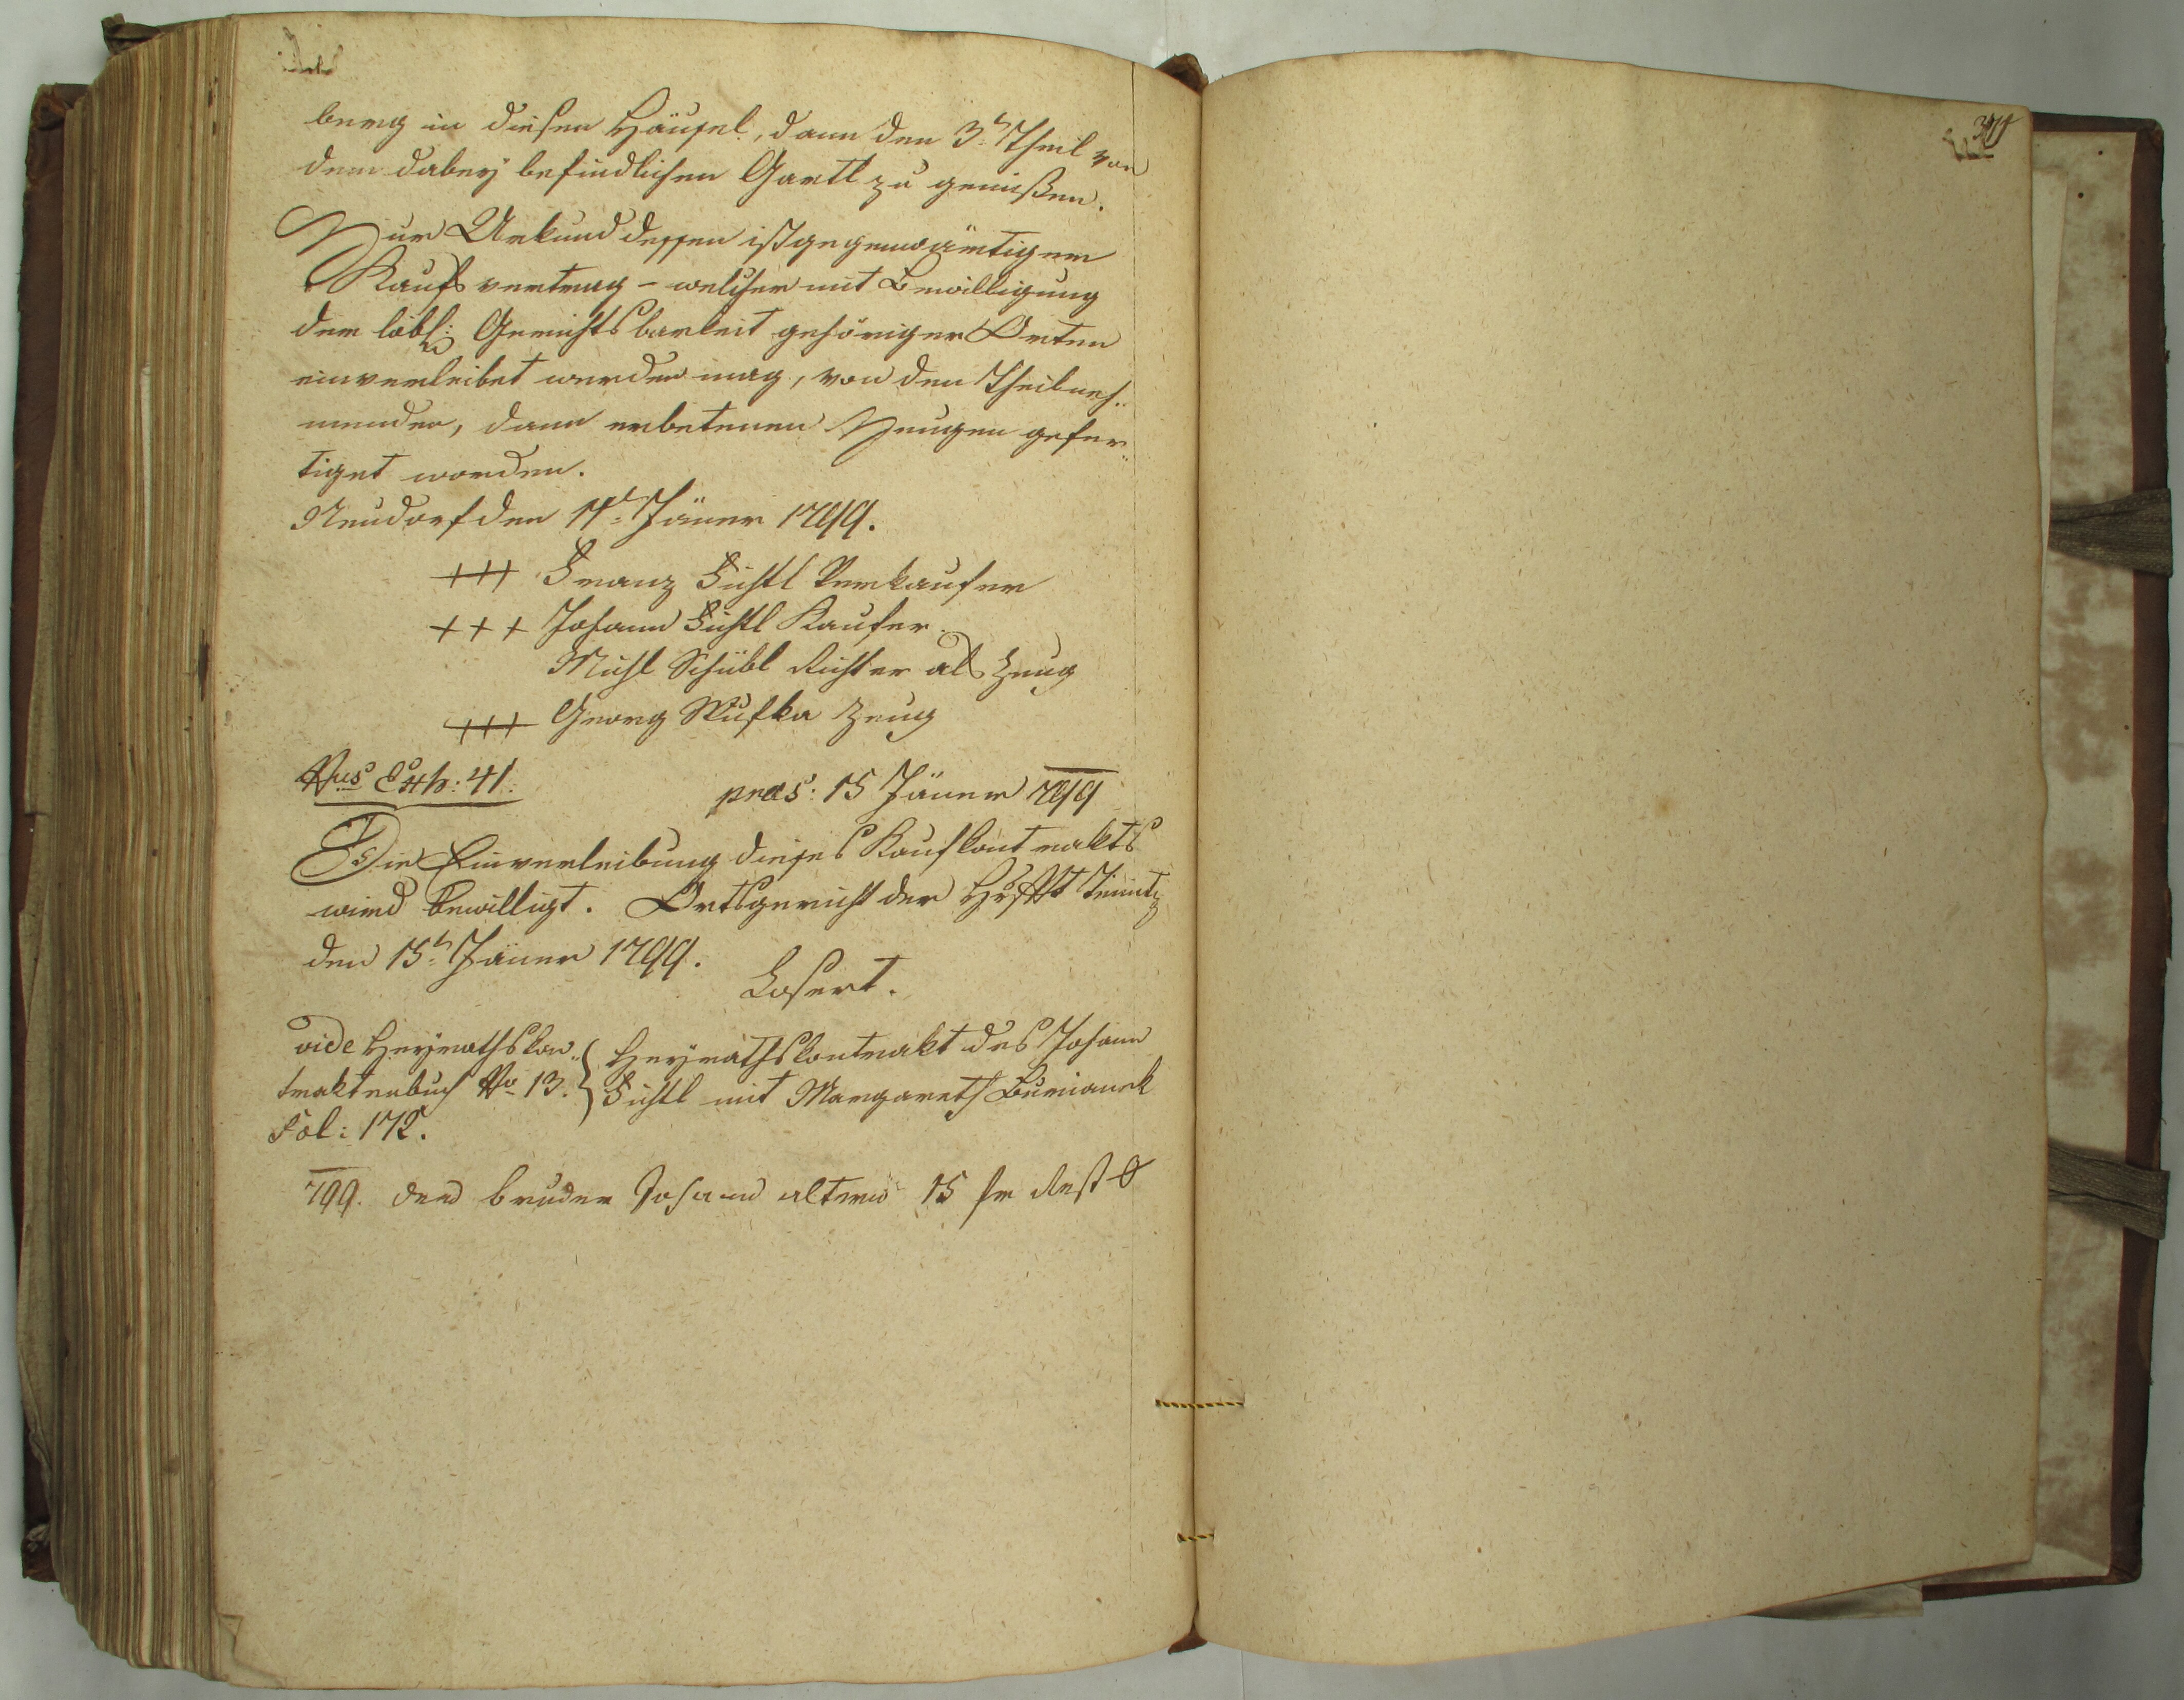 berg in diesen Häusel, dann den 3t Theil von
dem dabey befindlichen Gartl zu genießen.
Zur Urkund dessen ist gegenwärtiger
Kaufsvertrag – welcher mit Bewilligung
der löbl: Gerichtsbarkeit gehöriger Orten
einverleibet werden mag, von den Theilneh„
menden, dann erbetenen Zeugen gefer„
tiget worden.
Neudorf den 11t Jäner 1799.
+++ Franz Fichtl Verkaufer
+++ Johann Fichtl Kaufer.
Michl Schübl Richter als Zeug
+++ Georg Zeug
Nus Exh: 41.
præs: 15 Jäner 799
Die Einverleibung dieses Kaufkontrakts
wird bewilligt. Ortsgericht der Hrschft
den 15t Jäner 1799.
Losert.
vide Heyrathskon„
traktenbuch No 13.
Fol: 172.
Heyrathskontrakt des Johann
Fichtl mit Margareth Burianek
799. dem bruder Johann 15 fr Rest